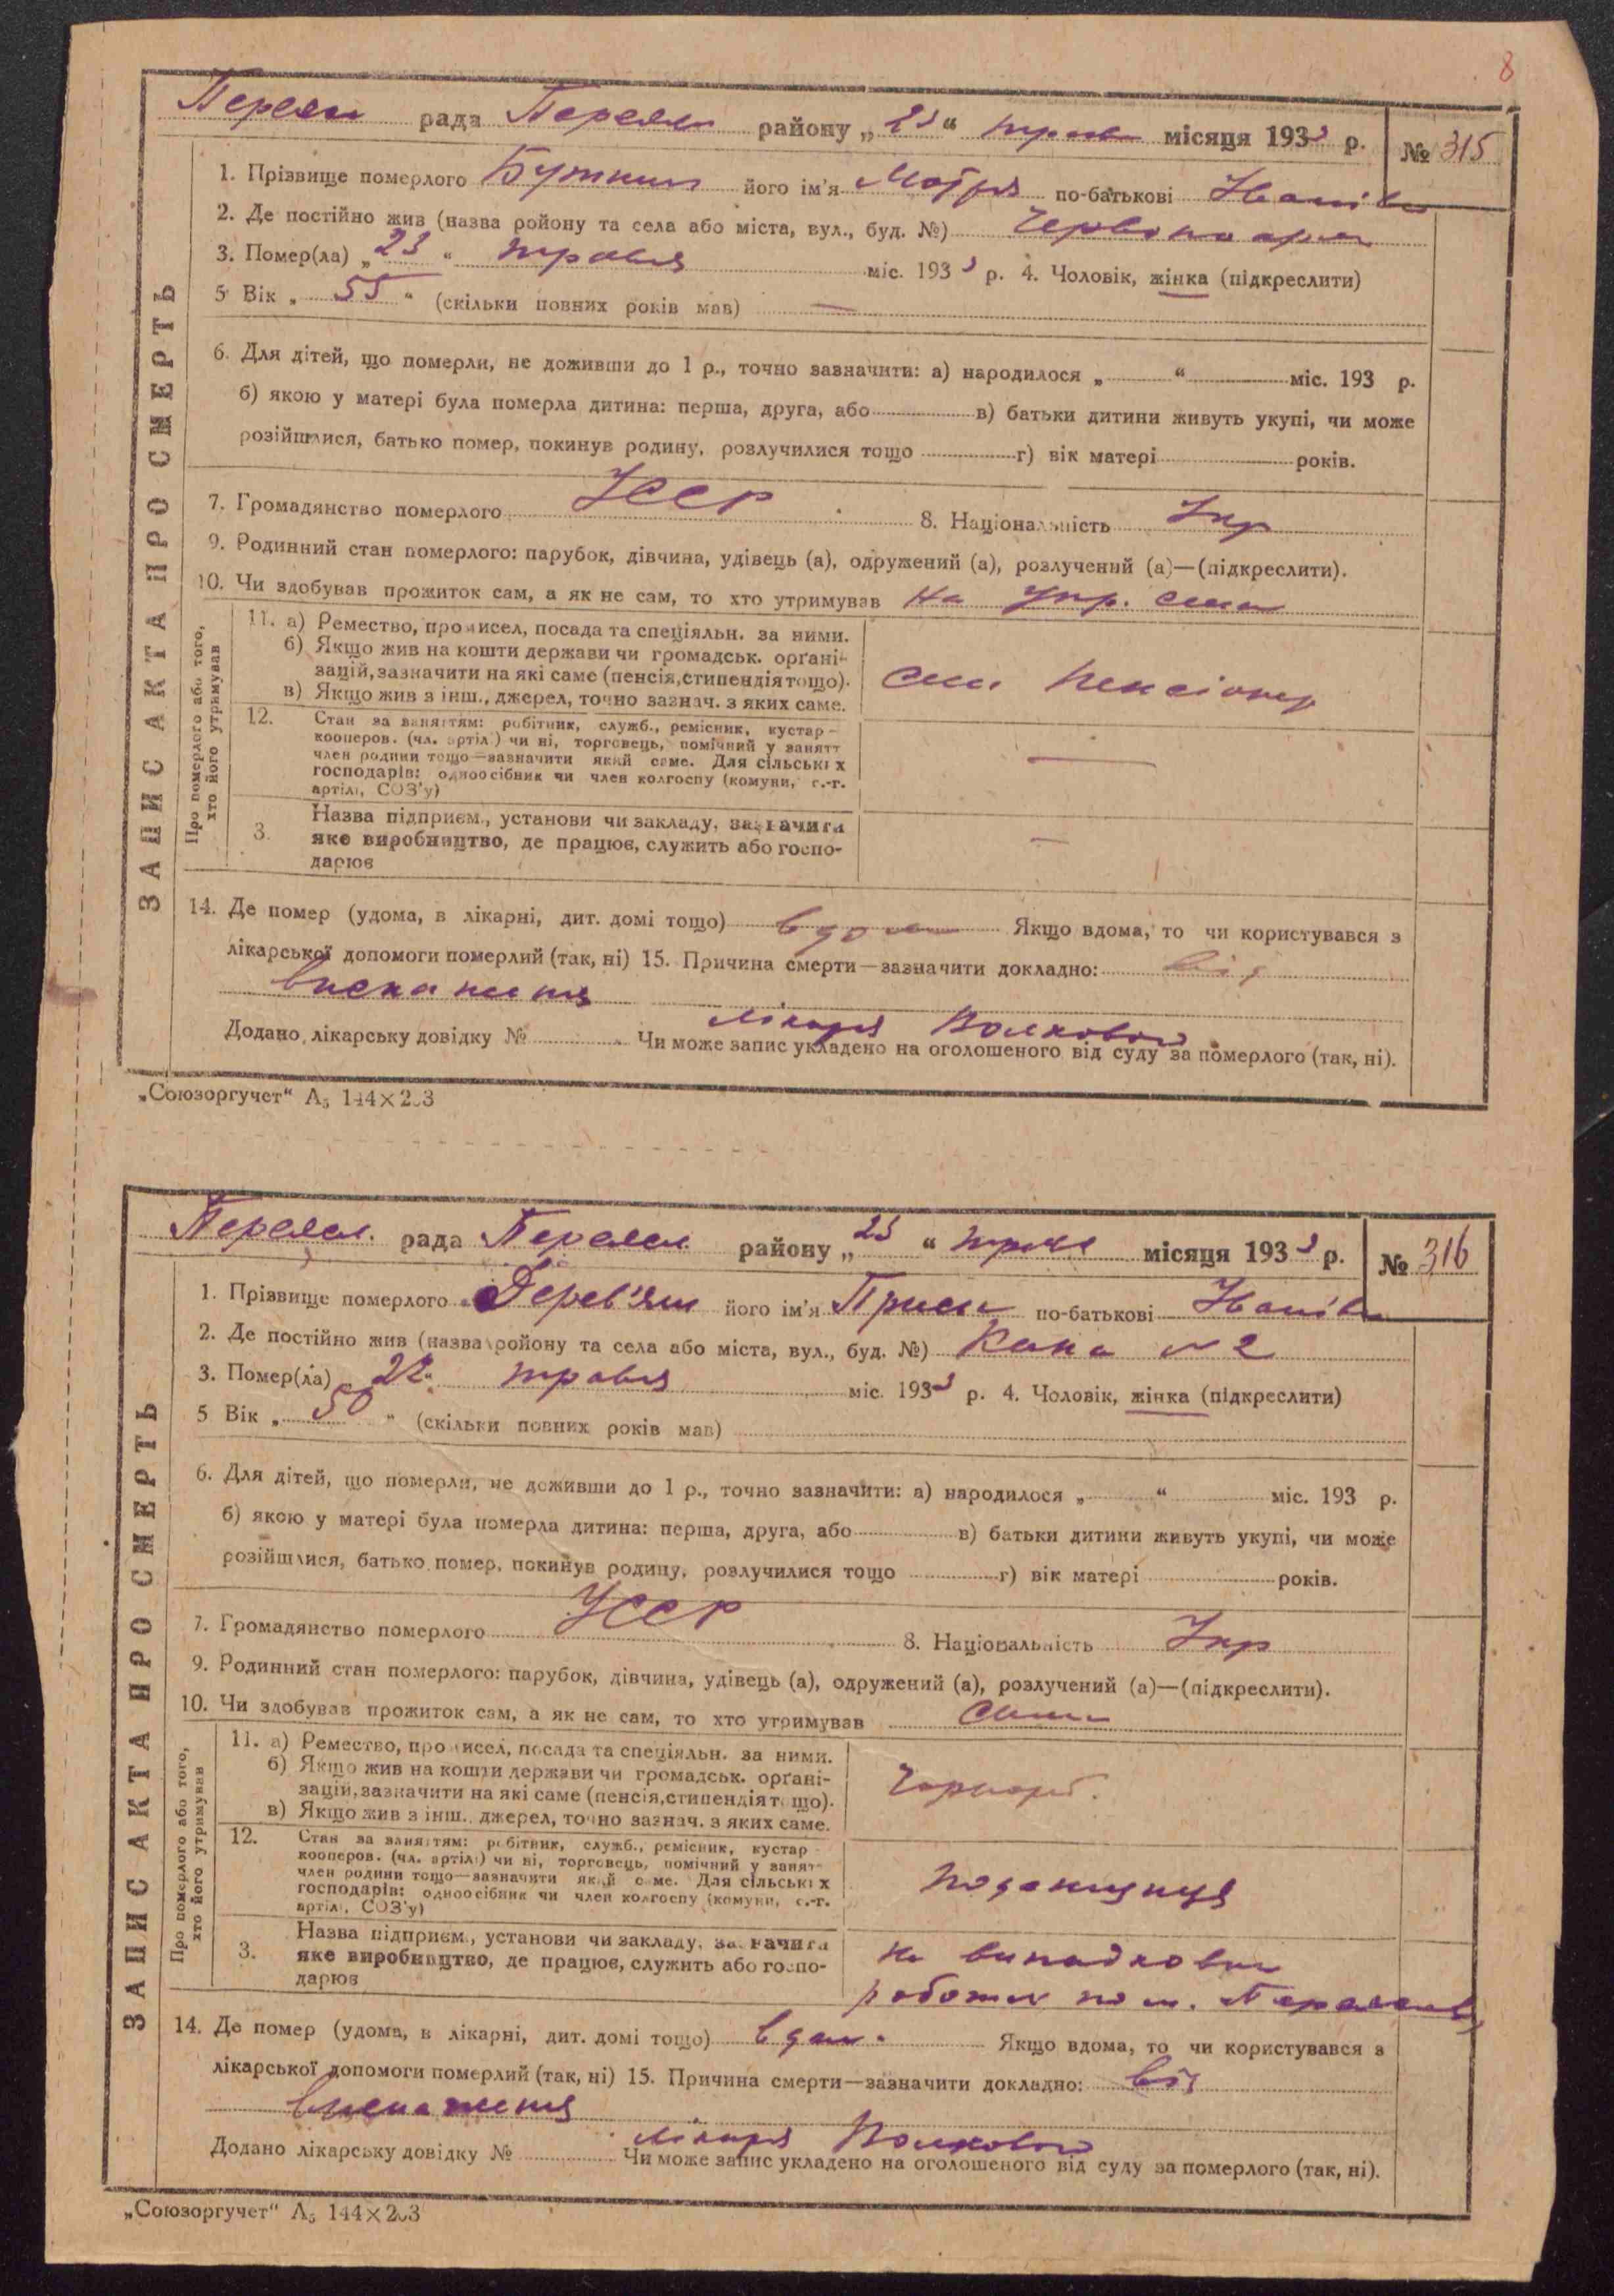 8
Переясл рада Переясл району „23“ трав місяця 1933 р. № 315
1. Прізвище померлого його ім'я Мотря по-батькові Іванівн
2. Де постійно жив (назва ройону та села або міста, вул., буд. №) Червоноарм
3. Помер(ла) „23“ травня міс. 1933 р. 4. Чоловік, жінка (підкреслити)
5 Вік „55“ (скільки повних років мав) —
6. Для дітей, що померли, не доживши до 1 р., точно зазначити: а) народилося „ “ міс. 193 р.
б) якою у матері була померла дитина: перша, друга, або в) батьки дитини живуть укупі, чи може
розійшлися, батько помер, покинув родину, розлучилися тощо г) вік матері років.
7. Громадянство померлого УССР 8. Національність Укр
9. Родинний стан померлого: парубок, дівчина, удівець (а), одружений (а), розлучений (а)—(підкреслити).
10. Чи здобував прожиток сам, а як не сам, то хто утримував На Утр. сина
Про померлого або того, хто його утримував
11. а) Ремество, промисел, посада та спеціяльн. за ними.
б) Якщо жив на кошти держави чи громадськ. орґані-
зацій, зазначити на які саме (пенсія, стипендія тощо).
в) Якщо жив з інш., джерел, точно зазнач. з яких саме.
син пенсіонер
12. Стан за заняттям: робітник, служб., ремісник, кустар-
кооперов. (чл. артілі) чи ні, торговець, помічний у занятт
член родини тощо—зазначити який саме. Для сільських
господарів: одноосібник чи член колгоспу (комуни, с.-г.
артілі, СОЗ'у)
—
3. Назва підприєм., установи чи закладу, зазначити
яке виробництво, де працює, служить або госпо-
дарює
—
14. Де помер (удома, в лікарні, дит. домі тощо) вдома Якщо вдома, то чи користувався з
лікарської допомоги померлий (так, ні) 15. Причина смерти—зазначити докладно: від
виснаження
лікаря Волкової
Додано лікарську довідку № . Чи може запис укладено на оголошеного від суду за померлого (так, ні).
ЗАПИС АКТА ПРО СМЕРТЬ
„Союзоргучет“ А5 144×203
Переясл. рада Переясл. району „23“ травн місяця 1933 р. № 316
1. Прізвище померлого Дерев'ян його ім'я Приська по-батькові Іванівн
2. Де постійно жив (назва ройону та села або міста, вул., буд. №) № 2
3. Помер(ла) 22 травня міс. 1933 р. 4. Чоловік, жінка (підкреслити)
5 Вік „50“ (скільки повних років мав)
6. Для дітей, що померли, не доживши до 1 р., точно зазначити: а) народилося „ “ міс. 193 р.
б) якою у матері була померла дитина: перша, друга, або в) батьки дитини живуть укупі, чи може
розійшлися, батько помер, покинув родину, розлучилися тощо г) вік матері років.
7. Громадянство померлого УССР 8. Національність Укр
9. Родинний стан померлого: парубок, дівчина, удівець (а), одружений (а), розлучений (а)—(підкреслити).
10. Чи здобував прожиток сам, а як не сам, то хто утримував сама
Про померлого або того, хто його утримував
11. а) Ремество, промисел, посада та спеціяльн. за ними.
б) Якщо жив на кошти держави чи громадськ. орґані-
зацій, зазначити на які саме (пенсія, стипендія тощо).
в) Якщо жив з інш., джерел, точно зазнач. з яких саме.
Чорнороб.
12. Стан за заняттям: робітник, служб., ремісник, кустар-
кооперов. (чл. артілі) чи ні, торговець, помічний у занят-
член родини тощо—зазначити який саме. Для сільських
господарів: одноосібник чи член колгоспу (комуни, с.-г.
артілі, СОЗ'у)
поденниця
3. Назва підприєм., установи чи закладу, зазначити
яке виробництво, де працює, служить або госпо-
дарює
на випадкових
роботах по м. Переяслав
14. Де помер (удома, в лікарні, дит. домі тощо) вдома. Якщо вдома, то чи користувався з
лікарської допомоги померлий (так, ні) 15. Причина смерти—зазначити докладно: від
виснаження
лікаря Волкової
Додано лікарську довідку № Чи може запис укладено на оголошеного від суду за померлого (так, ні).
ЗАПИС АКТА ПРО СМЕРТЬ
„Союзоргучет“ А5 144×203